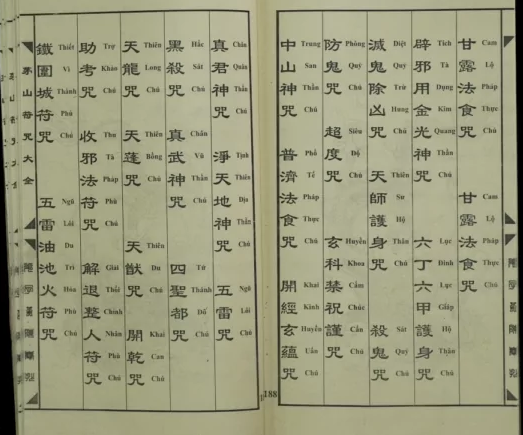 甘露法食咒 甘露法食咒
Cam Lộ Pháp Thực Chú Cam Lộ Pháp Thực Chú
辟邪用金光神咒 六丁六甲護身咒
Tích Tà Dụng Kim Quang Thần Chú Lục Đinh Lục Giáp Hộ Thân Chú
滅鬼除凶咒 天師護身咒 殺鬼咒
Diệt Quỷ Trừ Hung Chú Thiên Sư Hộ Thân Chú Sát Quỷ Chú
防鬼咒 超度咒 玄科禁祝謹咒
Phòng Quỷ Chú Siêu Độ Chú Huyền Khoa Cấm Chúc Cẩn Chú
中山神咒 普濟法食咒 開經玄蘊咒
Trung San Thần Chú Phổ Tế Pháp Thực Chú Khai Kinh Huyền Uẩn Chú
188
真君神咒 淨天地神咒 五雷咒
Chân Quân Thần Chú Tịnh Thiên Địa Thần Chú Ngũ Lôi Chú
黑殺咒 真武神咒 四聖都咒
Hắc Sát Chú Chân Vũ Thần Chú Tứ Thánh Đô Chú
天龍咒 天蓬咒 天猷咒 開乾咒
Thiên Long Chú Thiên Bồng Chú Thiên Du Chú Khai Can Chú
助考咒 收邪法符咒 解退整人符咒
Trợ Khảo Chú Thu Tà Pháp Phù Chú Giải Thối Chỉnh Nhân Phù Chú
鐵圍城符咒 五雷油池火符咒
Thiết Vi Thành Phù Chú Ngũ Lôi Du Trì Hỏa Phù Chú
茅山符咒大全